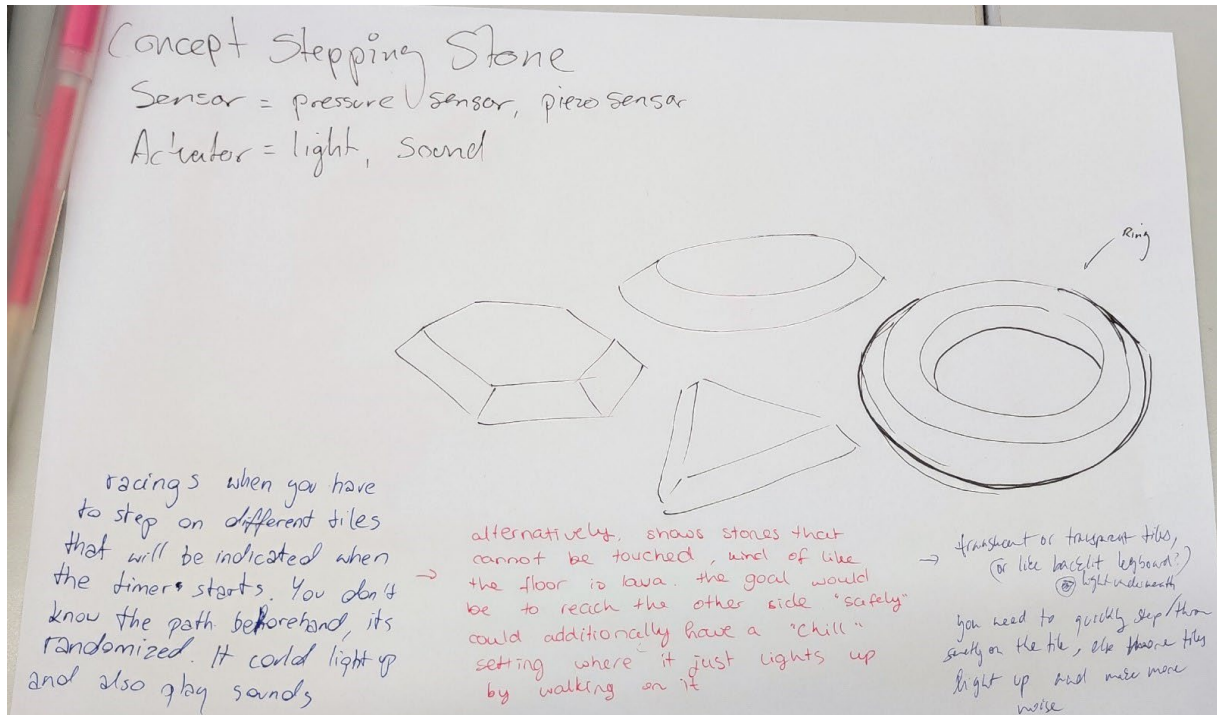 Concept Stepping Stone
Sensor = pressure sensor, piezo sensor
Actuator = light, sound
Ring
racings when you have
to step on different tiles
that will be indicated when
the timer starts. You don't
know the path beforehand, its
randomized. It could light up
and also play sounds
→ alternatively, shows stones that
cannot be touched, kind of like
the floor is lava. the goal would
be to reach the other side "safely"
could additionally have a "chill"
setting where it just lights up
by walking on it
→ or transparent tiles,
or like backlit keyboard?)
light underneath
you need to quickly step/
on the tile, else tiles
light up and more
noise